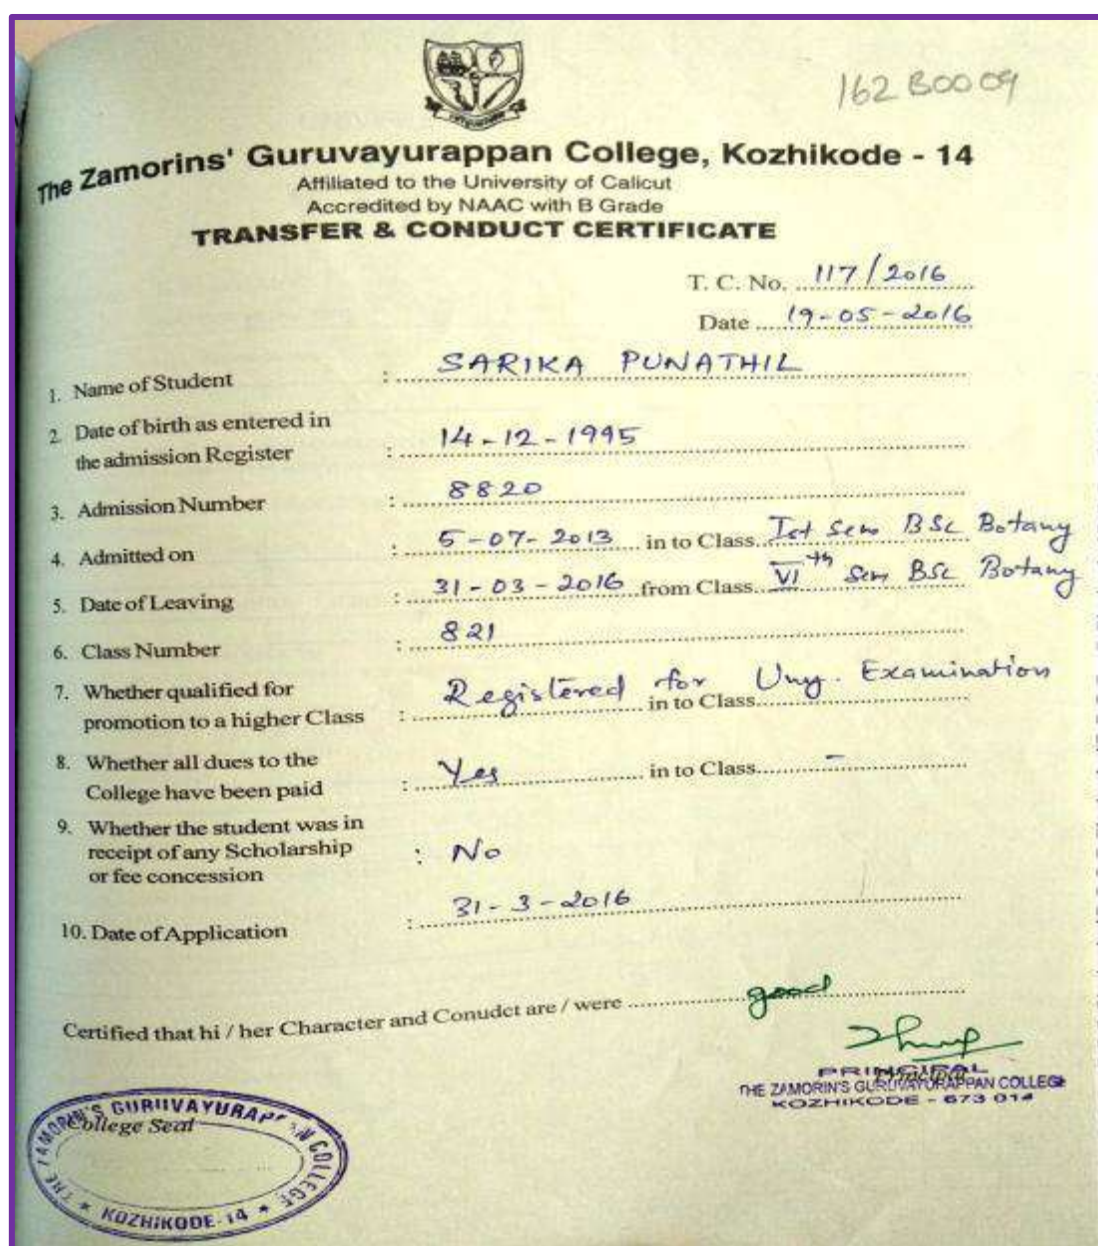 162B0009
The Zamorins' Guruvayurappan College, Kozhikode - 14
Affiliated to the University of Calicut
Accredited by NAAC with B Grade
TRANSFER & CONDUCT CERTIFICATE
T. C. No. 117/2016
Date 19-05-2016
1. Name of Student : SARIKA PUNATHIL
2. Date of birth as entered in
the admission Register : 14-12-1995
3. Admission Number : 8820
4. Admitted on : 5-07-2013 in to Class Ist Sem BSc Botany
5. Date of Leaving : 31-03-2016 from Class VIth Sem BSc Botany
6. Class Number : 821
7. Whether qualified for
promotion to a higher Class : Registered for Uny. Examination in to Class
8. Whether all dues to the
College have been paid : Yes in to Class -
9. Whether the student was in
receipt of any Scholarship : No
or fee concession
10. Date of Application : 31-3-2016
Certified that hi / her Character and Conudct are / were good
PRINCIPAL
Principal
THE ZAMORIN'S GURUVAYURAPPAN COLLEGE
KOZHIKODE - 673 014
College Seal
THE ZAMORIN'S GURUVAYURAPPAN COLLEGE
* KOZHIKODE-14 *